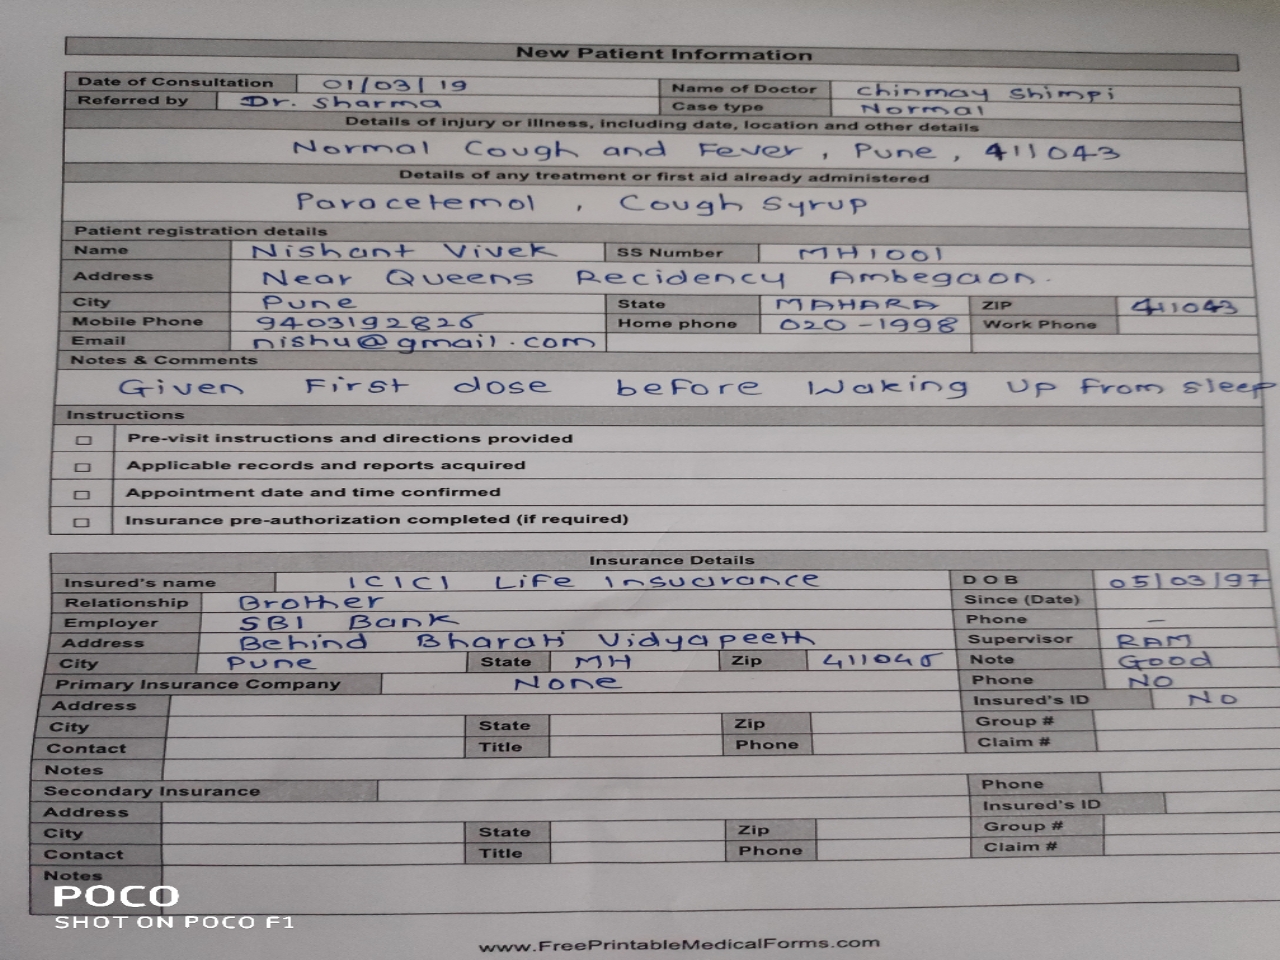 New Patient Information
Date of Consultation 01/03/19 Name of Doctor Chinmay Shimpi
Referred by Dr. Sharma Case type Normal
Details of injury or illness, including date, location and other details
Normal Cough and Fever, Pune, 411043
Details of any treatment or first aid already administered
Paracetemol, Cough Syrup
Patient registration details
Name Nishant Vivek SS Number MH1001
Address Near Queens Recidency Ambegaon.
City Pune State MAHARA ZIP 411043
Mobile Phone 9403192826 Home phone 020-1998 Work Phone
Email nishu@gmail.com
Notes & Comments
Given First dose before Waking Up From sleep
Instructions
Pre-visit instructions and directions provided
Applicable records and reports acquired
Appointment date and time confirmed
Insurance pre-authorization completed (if required)
Insurance Details
Insured's name ICICI Life Insucurance DOB 05/03/97
Relationship Brother Since (Date)
Employer SBI Bank Phone —
Address Behind Bharati Vidyapeeth Supervisor RAM
City Pune State MH Zip 411046 Note Good
Primary Insurance Company None Phone NO
Address Insured's ID NO
City State Zip Group #
Contact Title Phone Claim #
Notes
Secondary Insurance Phone
Address Insured's ID
City State Zip Group #
Contact Title Phone Claim #
Notes
POCO
SHOT ON POCO F1
www.FreePrintableMedicalForms.com